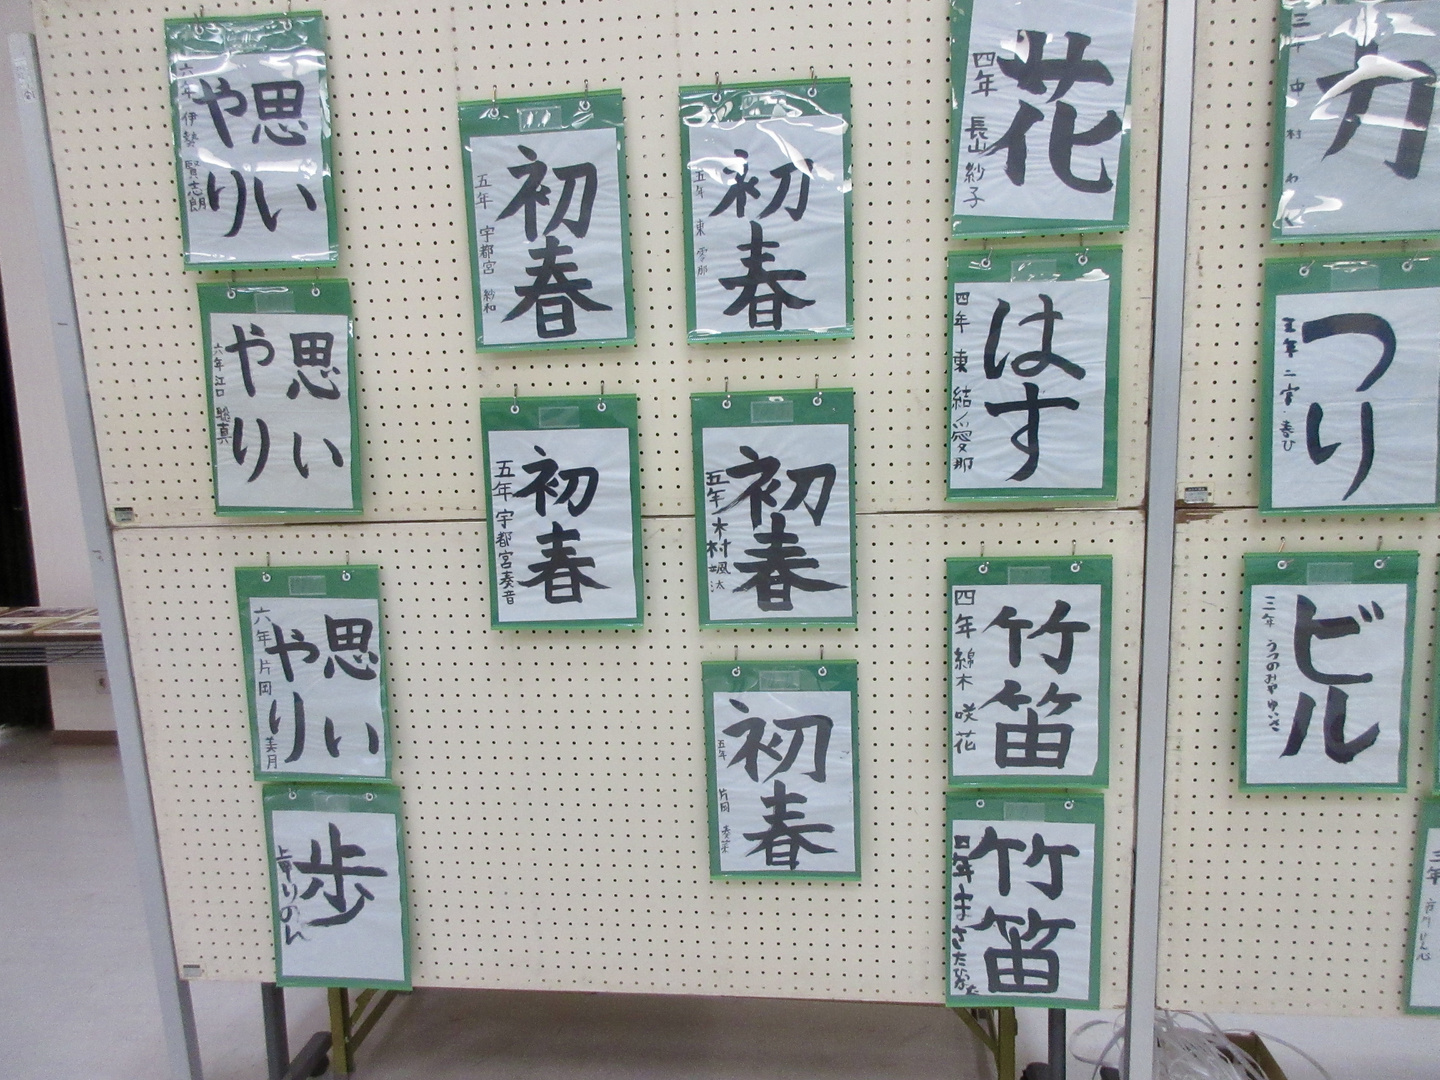 思い
やり
六年 伊勢 賢志朗
思い
やり
六年 江口 聡真
思い
やり
六年 片岡 美月
歩
初春
五年 宇都宮 紗和
初春
五年 宇都宮奏音
初春
五年 東
初春
五年 木村颯汰
初春
五年 片岡
花
四年 長山 紗子
はす
四年 東 結愛那
竹笛
四年 綿木 咲花
竹笛
四年
力
三年 中村
つり
三年 二宮 春ひ
ビル
三年 うつのみや ゆいさ
三年